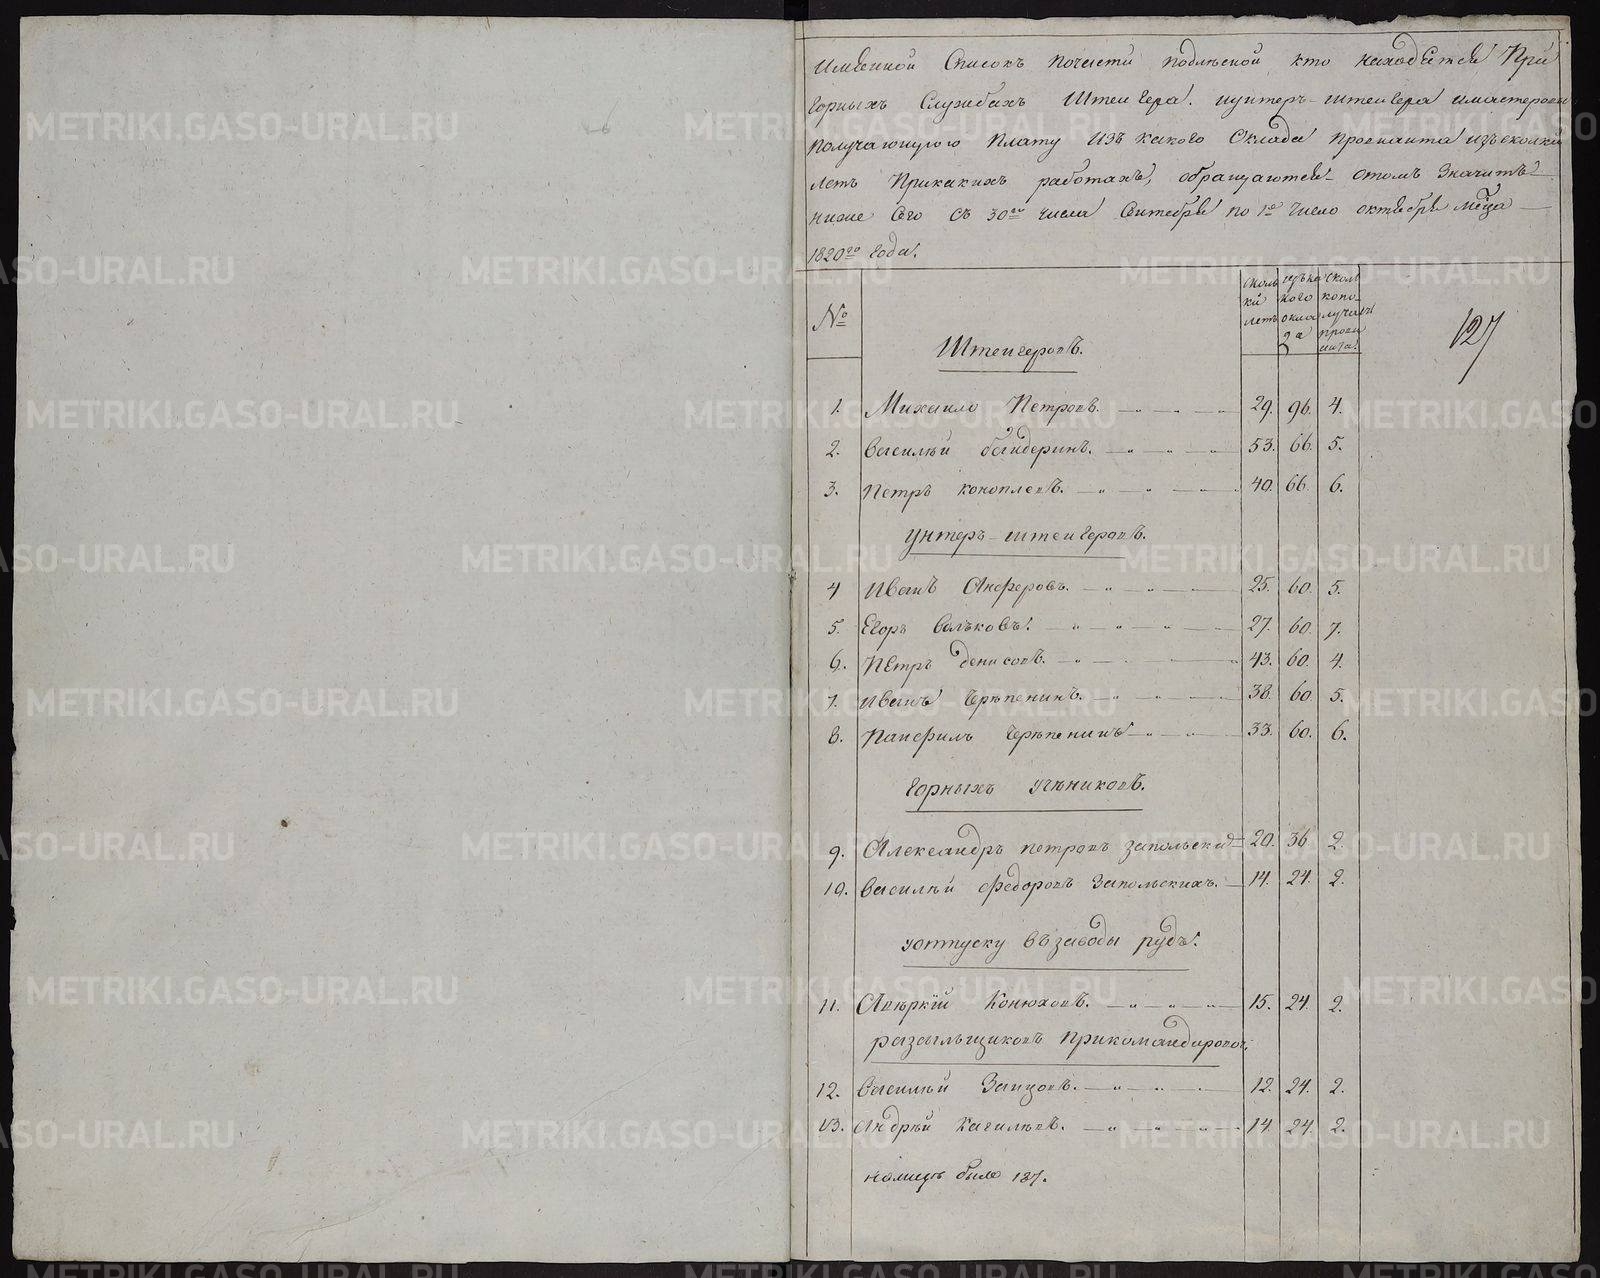 Имянной Списокъ почасти подлѣсной кто находится При
Горныхъ Службахъ Штейгера. иунтеръ-штейгера имастеровы
получающую Плату Изъ какого Оклада провианта изъсколки
летъ Прикакихъ работахъ, обращаются отомъ Значитъ
ниже Сего Съ 30го числа Сентебря по 1е число октября Мсца
1820го Года.
№
сколь ки летъ
изъка кого окла да
Сколь копо- лучилъ прови анта
127
Штейгеровъ.
1. Михаило Петровъ. 29. 96. 4.
2. Василѣй байдеринъ. 53. 66. 5.
3. Петръ коноплевъ. 40. 66. 6.
унтеръ-штейгеровъ.
4 Иванъ Анферовъ. 25. 60. 5.
5. Егоръ волъковъ. 27. 60. 7.
6. Петръ денисовъ. 43. 60. 4.
7. иванъ Черѣпенинъ. 38. 60 5.
8. Панфилъ Черѣпенинъ 33. 60. 6.
Горныхъ учѣниковъ.
9. Александръ петровъ запольскихъ 20. 36 2.
10. Василѣй федоровъ Запольскихъ. 14. 24. 2.
уотпуску взаводы рудъ.
11. Авѣркій Конюховъ. 15. 24. 2.
разсыльщиковъ прикомандировон.
12. Василѣй Заицовъ. 12. 24. 2.
13. Андрѣй Качилѣвъ. 14. 24. 2.
налицъ было 137.
METRIKI.GASO-URAL.RU